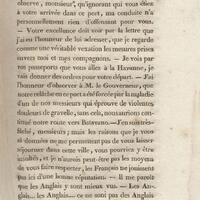 observe, monsieur, qu'ignorant qui vous étiez
à votre arrivée dans ce port, ma conduite n'a
personnellement rien d'offensant pour vous.
— Votre excellence doit voir par la lettre que
j'ai l'honneur de lui adresser, que je regarde
comme une véritable vexation les mesures prises
envers moi et mes compagnons. — Je vois par
vos passeports que vous allez à la Havanne, je
vais donner des ordres pour votre départ. — J'ai
l'honneur d'observer à M. le Gouverneur, que
notre relâche en ce port a été forcée par la maladie
d'un de nos messieurs qui éprouve de violentes
douleurs de gravelle, sans cela, nous aurions con-
tinué notre route vers
.—J'en suis très-
fâché, messieurs; mais les raisons que je vous
ai données ne me permettent pas de vous laisser
séjourner dans cette ville, vous pourriez y être
insultés, et je n'aurais peut-être pas les moyens
de vous faire respecter, les Français ne jouissent
pas ici d'une bonne réputation. — Il me paroît
que les Anglais y sont mieux vus. — Les An-
glais... les Anglais... ce ne sont pas des Anglais